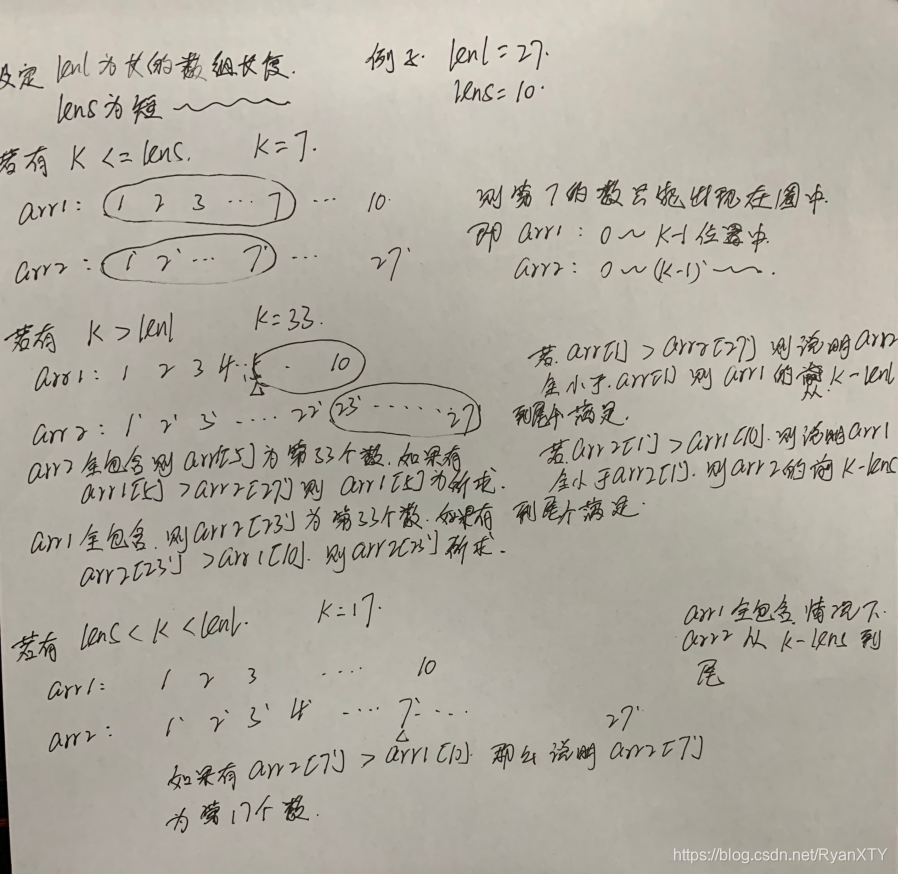 设定 lenl 为长的数组长度. 例子. lenl = 27.
lens 为短 lens = 10.
若有 K <= lens. K = 7.
arr1: 1 2 3 ... 7 ... 10 则第7的数只能出现在圈中.
即 arr1: 0 ~ K-1 位置中.
arr2: 1' 2' ... 7' ... 27' arr2: 0 ~ (K-1)'
若有 K > lenl K = 33.
arr1: 1 2 3 4 .. 5 . 10
arr2: 1' 2' 3' .... 22' 23' ...... 27'
若 arr1[1] > arr2[27'] 则说明 arr2
全小于 arr1[1] 则 arr1 的 从 K-lenl
到尾个满足.
若 arr2[1'] > arr1[10]. 则说明 arr1
全小于 arr2[1']. 则 arr2 的前 K-lens
到尾个满足.
arr2 全包含则 arr1[5] 为第33个数. 如果有
arr1[5] > arr2[27'] 则 arr1[5] 为所求.
arr1 全包含. 则 arr2[23'] 为第33个数. 如果有
arr2[23'] > arr1[10]. 则 arr2[23'] 所求.
若有 lens < K < lenl. K = 17.
arr1: 1 2 3 .... 10
arr2: 1' 2' 3' 4' .... 7' ... 27'
arr1 全包含. 情况下.
arr2 从 K-lens 到
尾
如果有 arr2[7'] > arr1[10]. 那么说明 arr2[7']
为第17个数.
https://blog.csdn.net/RyanXTY